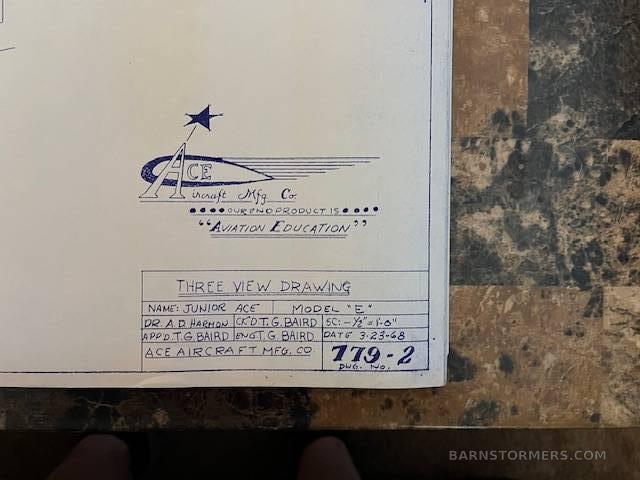 ACE
Aircraft Mfg. Co.
OUR END PRODUCT IS
"AVIATION EDUCATION"
THREE VIEW DRAWING
NAME: JUNIOR ACE MODEL "E"
DR. A.D. HARMON CK'D. T.G. BAIRD SC: - ½" = 1'-0"
APP'D. T.G. BAIRD ENG. T.G. BAIRD DATE 3-23-68
ACE AIRCRAFT MFG. CO. 779-2
DWG. NO.
BARNSTORMERS.COM